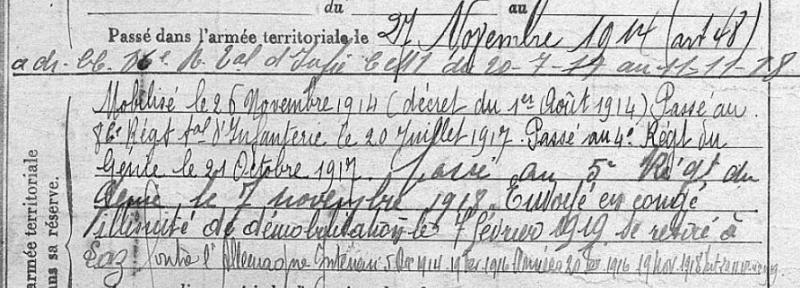 du au
Passé dans l'armée territoriale le 27 Novembre 1914 (art 48)
du 20-7-17 au 11-11-18
Mobilisé le 26 Novembre 1914 (décret du 1er Août 1914) Passé au
86e Régt tal d'Infanterie le 20 Juillet 1917. Passé au 4e Régt du
Génie le 21 Octobre 1917. Passé au 5e Régt du
Génie le 7 novembre 1918. Envoyé en congé
illimité de démobilisation le 7 février 1919 se retire à
Laz Contre l'Allemagne Intérieur 1914 1916 1916 19 nov 1918
armée territoriale
ans sa réserve.